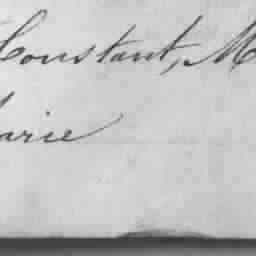 Constant, M
arie